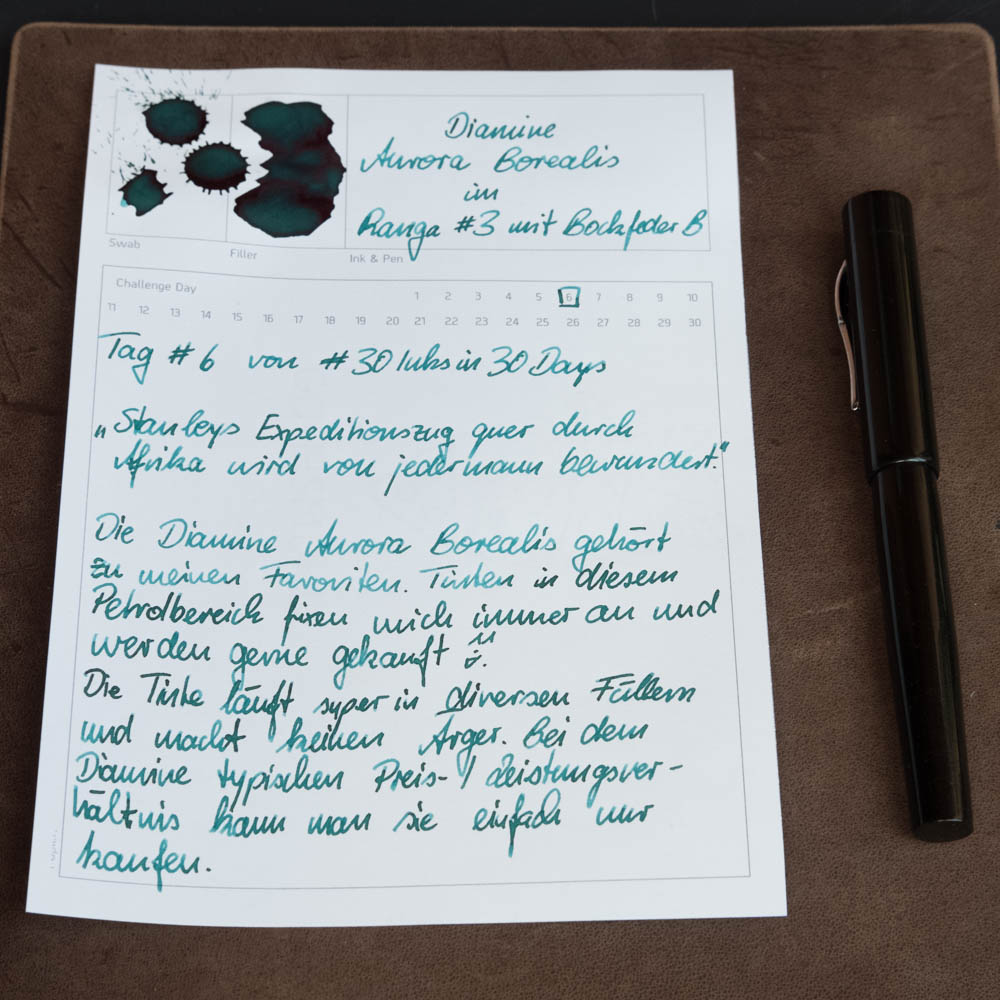 Diamine
Aurora Borealis
im
Ranga #3 mit Bockfeder B
Swab
Filler
Ink & Pen
Challenge Day
1 2 3 4 5 6 7 8 9 10
11 12 13 14 15 16 17 18 19 20 21 22 23 24 25 26 27 28 29 30
Tag #6 von #30 Inks in 30 Days
„Stanleys Expeditionszug quer durch
Afrika wird von jedermann bewundert."
Die Diamine Aurora Borealis gehört
zu meinen Favoriten. Tinten in diesem
Petrolbereich fixen mich immer an und
werden gerne gekauft
Die Tinte läuft super in diversen Füllern
und macht keinen Ärger. Bei dem
Diamine typischen Preis-/Leistungsver-
hältnis kann man sie einfach nur
kaufen.